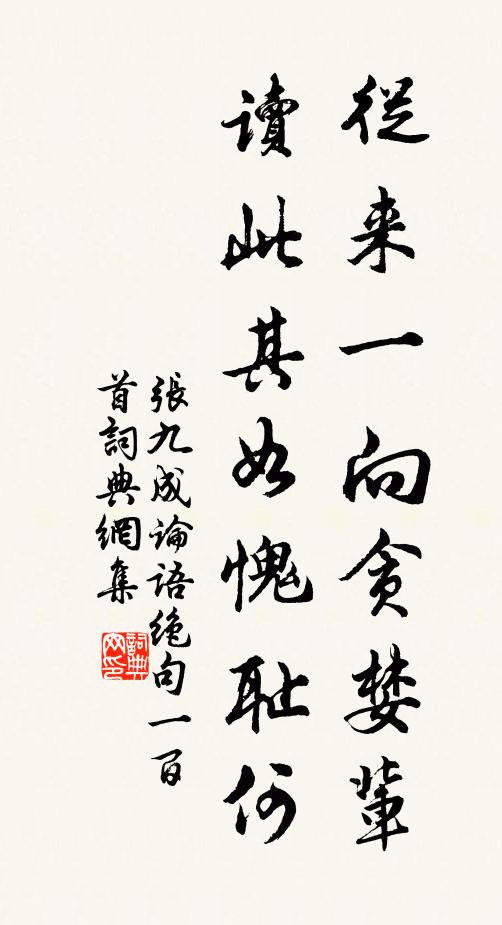 從来一向贪婪輩
讀此其如愧耻何
張九成論語绝句一百
首詞典網集
詞典网印